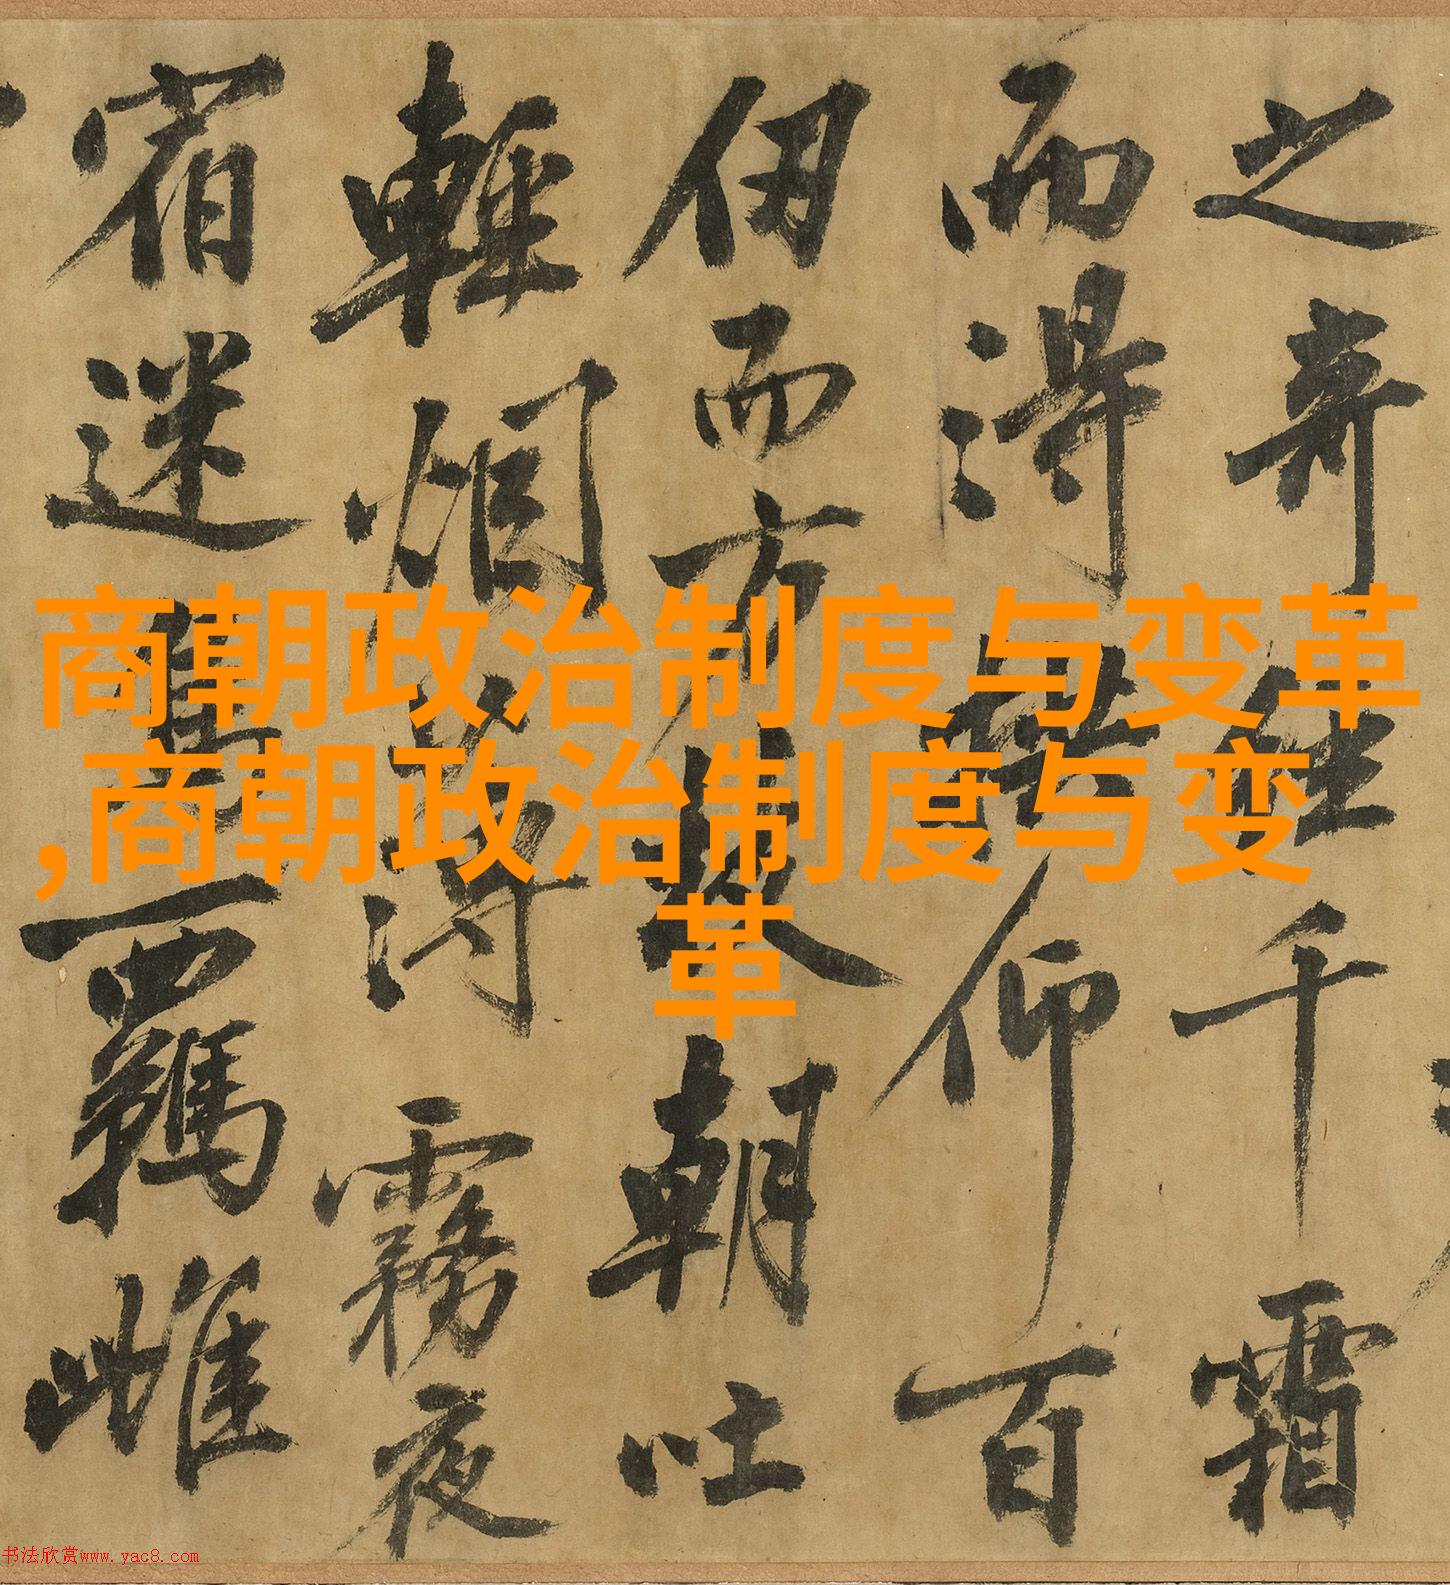 商朝政治制度与变革
,商朝政治制度与变
革
之奇千霜
而得拱仰百
伊而方朝吐
輕烟薄霧夜
宿迷羈雌
书法欣赏www.yac8.com